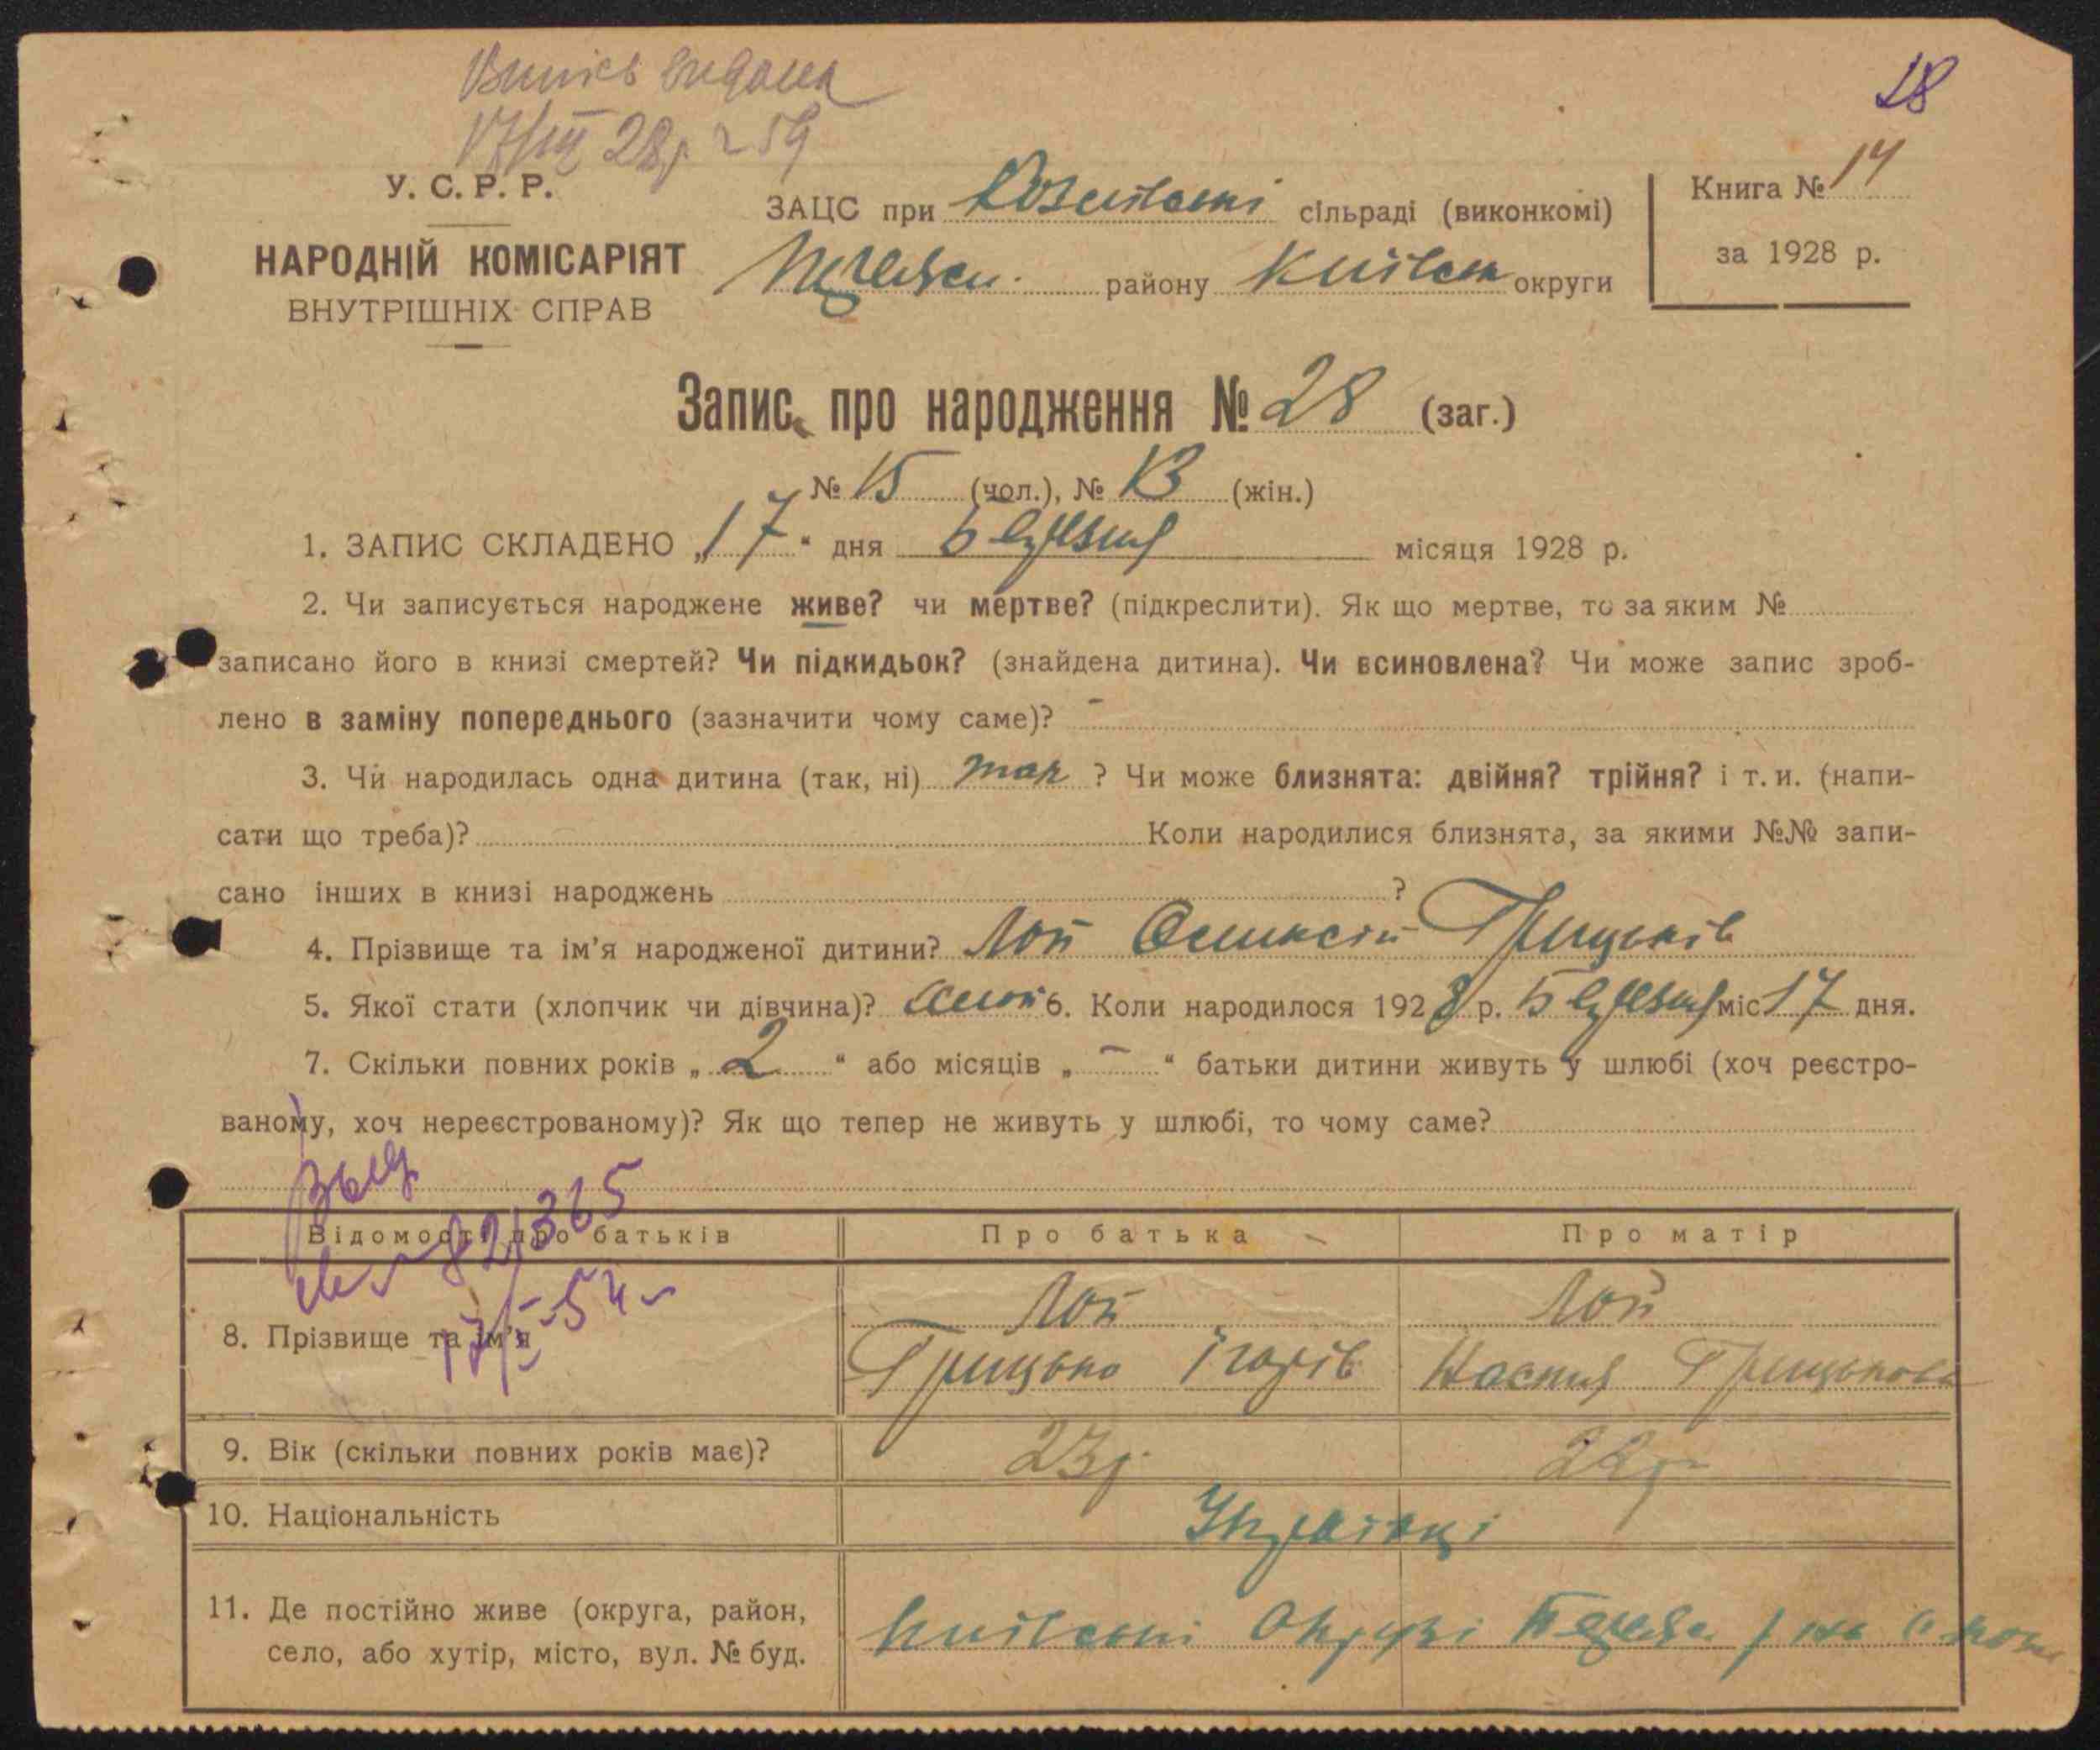 28
Випись видана
17/III 28р. № 59
У. С. Р. Р.
НАРОДНІЙ КОМІСАРІЯТ
ВНУТРІШНІХ СПРАВ
ЗАЦС при сільраді (виконкомі)
району Київськ округи
Книга № 14
за 1928 р.
Запис про народження № 28 (заг.)
№ 15 (чол.), № 13 (жін.)
1. ЗАПИС СКЛАДЕНО „17“ дня Березня місяця 1928 р.
2. Чи записується народжене живе? чи мертве? (підкреслити). Як що мертве, то за яким №
записано його в книзі смертей? Чи підкидьок? (знайдена дитина). Чи всиновлена? Чи може запис зроб-
лено в заміну попереднього (зазначити чому саме)? -
3. Чи народилась одна дитина (так, ні) так ? Чи може близнята: двійня? трійня? і т. и. (напи-
сати що треба)? Коли народилися близнята, за якими №№ запи-
сано інших в книзі народжень ?
4. Прізвище та ім'я народженої дитини? Лой Олексій Грицьків
5. Якої стати (хлопчик чи дівчина)? 6. Коли народилося 1928 р. Березня міс 17 дня.
7. Скільки повних років „ 2 “ або місяців „ - “ батьки дитини живуть у шлюбі (хоч реєстро-
ваному, хоч нереєстрованому)? Як що тепер не живуть у шлюбі, то чому саме?
17/V-54
Відомості про батьків Про батька Про матір
8. Прізвище та ім'я Лой Лой
Грицько Ігорів Настя Грицькова
9. Вік (скільки повних років має)? 23р. 22р.
10. Національність Українці
11. Де постійно живе (округа, район,
село, або хутір, місто, вул. № буд. Київські Округи